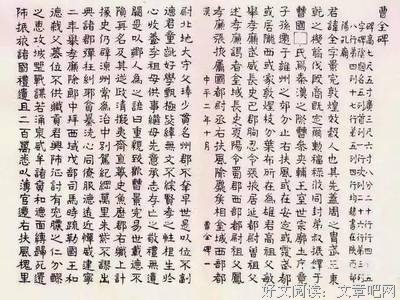 曹全碑
君諱全字景完敦煌效穀人也其先蓋周之胄武王秉
乾之機翦伐殷商既定爾勳福祿攸同封弟叔振鐸于
曹國因氏焉秦漢之際曹參夾輔王室世宗廓土斥竟
子孫遷于雍州之郊分止右扶風或在安定或處武都
或居隴西或家敦煌枝分葉布所在為雄君高祖父敏
舉孝廉武威長史巴郡朐忍令張掖居延都尉曾祖父
述孝廉謁者金城長史夏陽令蜀郡西部都尉祖父鳳
孝廉張掖屬國都尉丞右扶風隃麋侯相金城西部都
中平二年十月
曹全碑 一
尉北地太守父琫少貫名州郡不幸早世是以位不副
德君童齔好學甄極毖緯無文不綜賢孝之性根生於
心收養季祖母供事繼母先意承志存亡之敬禮無遺
闕是以鄉人為之諺曰重親致歡曹景完易世載德不
隕其名及其從政清擬夷齊直慕史魚歷郡右職上計
掾史仍辟涼州常為治中別駕紀綱萬里朱紫不謬出
典諸郡彈枉糾邪貪暴洗心同僚服德遠近憚威建寧
二年舉孝廉除郎中拜西域戊部司馬時疏勒國王和
德弒父篡位不供職貢君興師征討有吮膿之仁分醪
之惠攻城野戰謀若涌泉威牟諸賁和德面縛歸死還
師振旅諸國禮遺且二百萬悉以薄官遷右扶風槐里
好文阅读：文章吧网